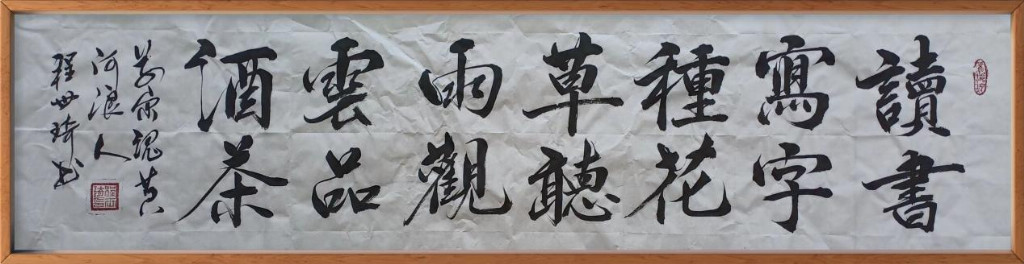 讀書
寫字
種花
草聽
雨觀
雲品
酒茶
黃
河浪人
程世琦书